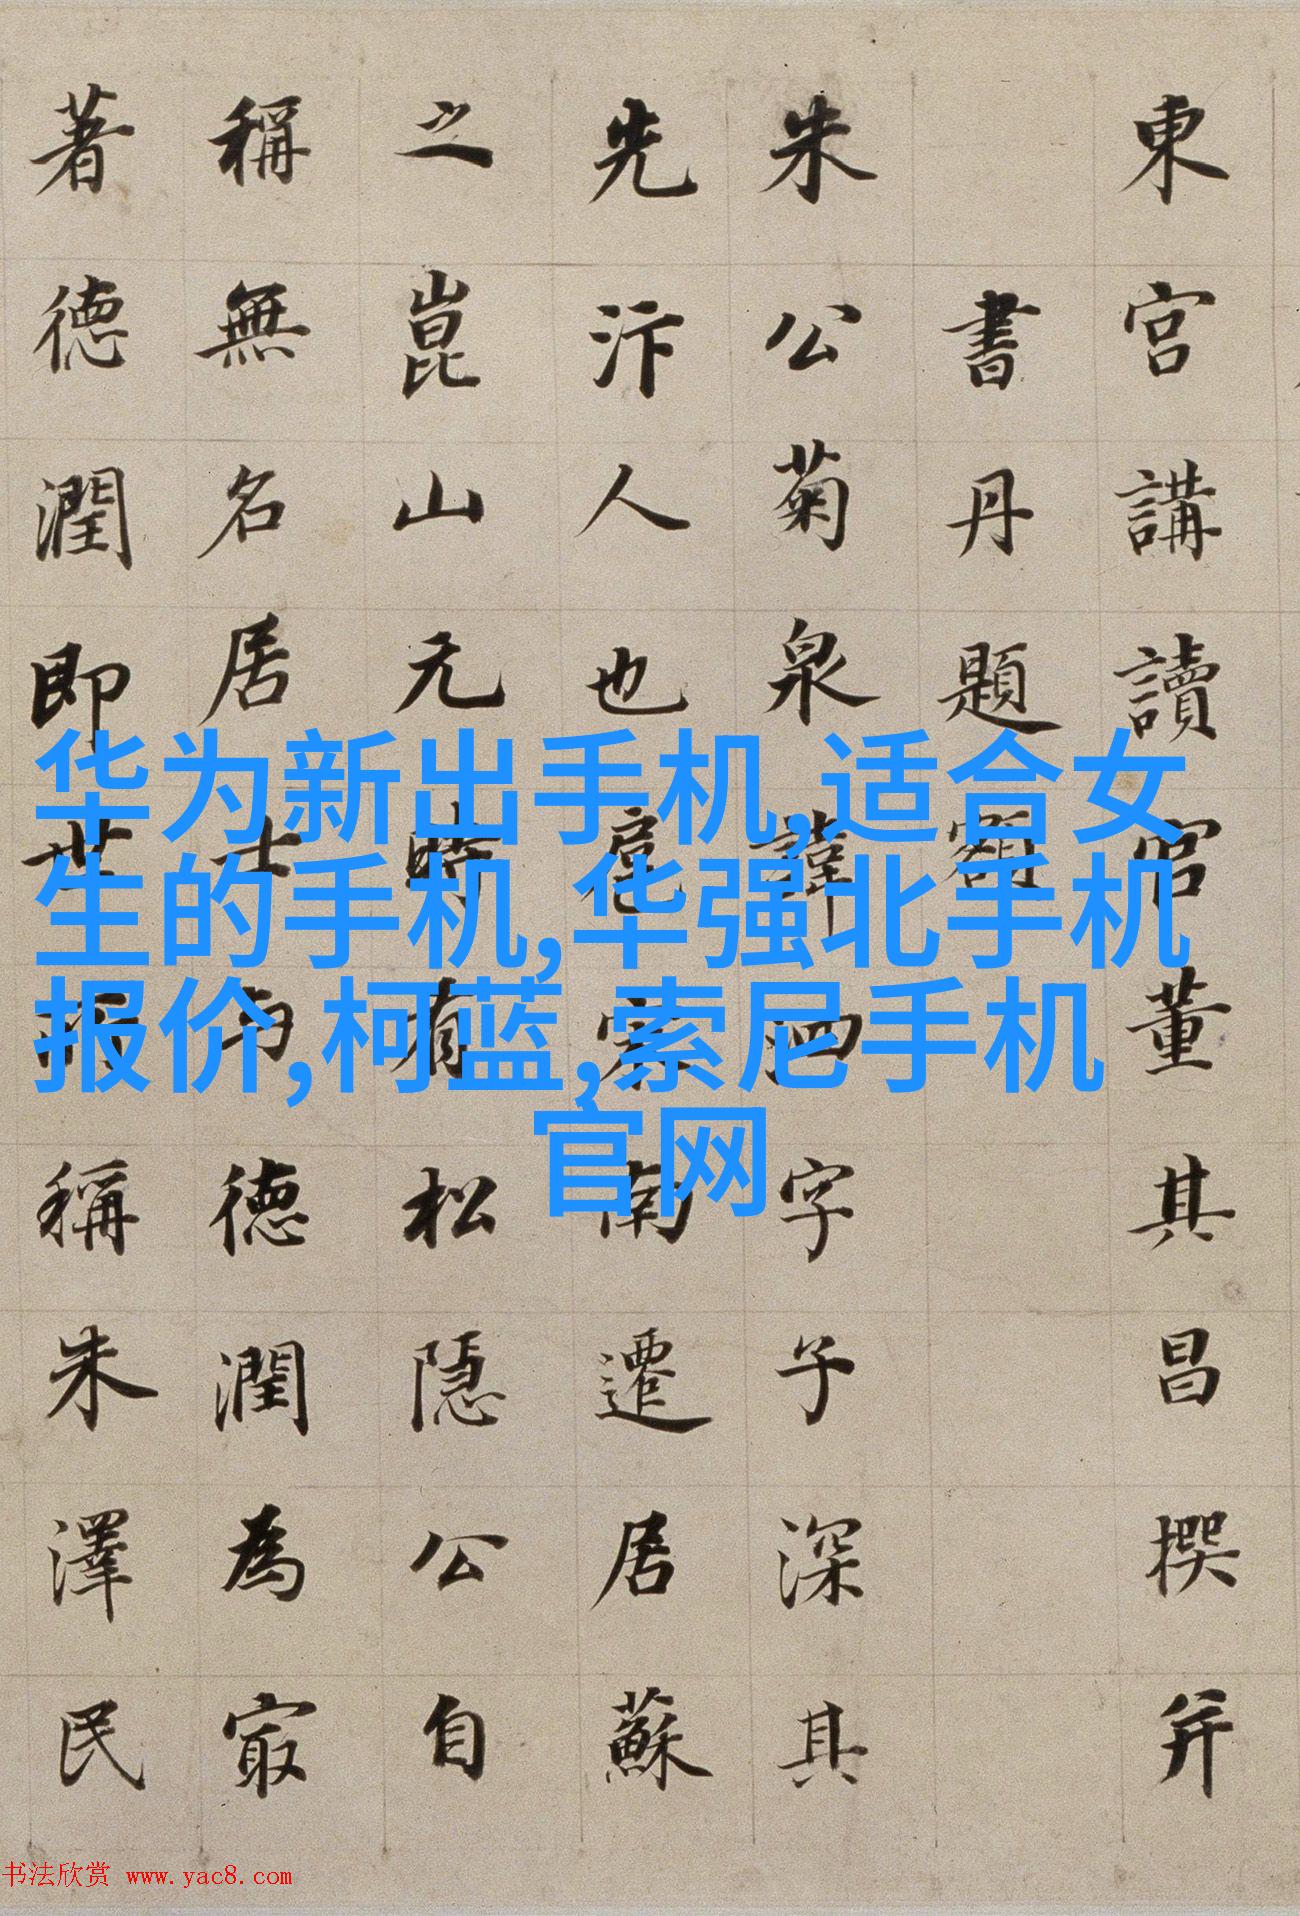 東宮講讀官董其昌撰并
書丹題額
朱公菊泉諱泗字子深其
先汴人也扈宋南遷居蘇
之崑山元時有松隱公自
稱無名居士与德潤為㝡
著德潤即世所稱朱澤民
华为新出手机,适合女
生的手机,华强北手机
报价,柯蓝,索尼手机
官网
书法欣赏 www.yac8.com